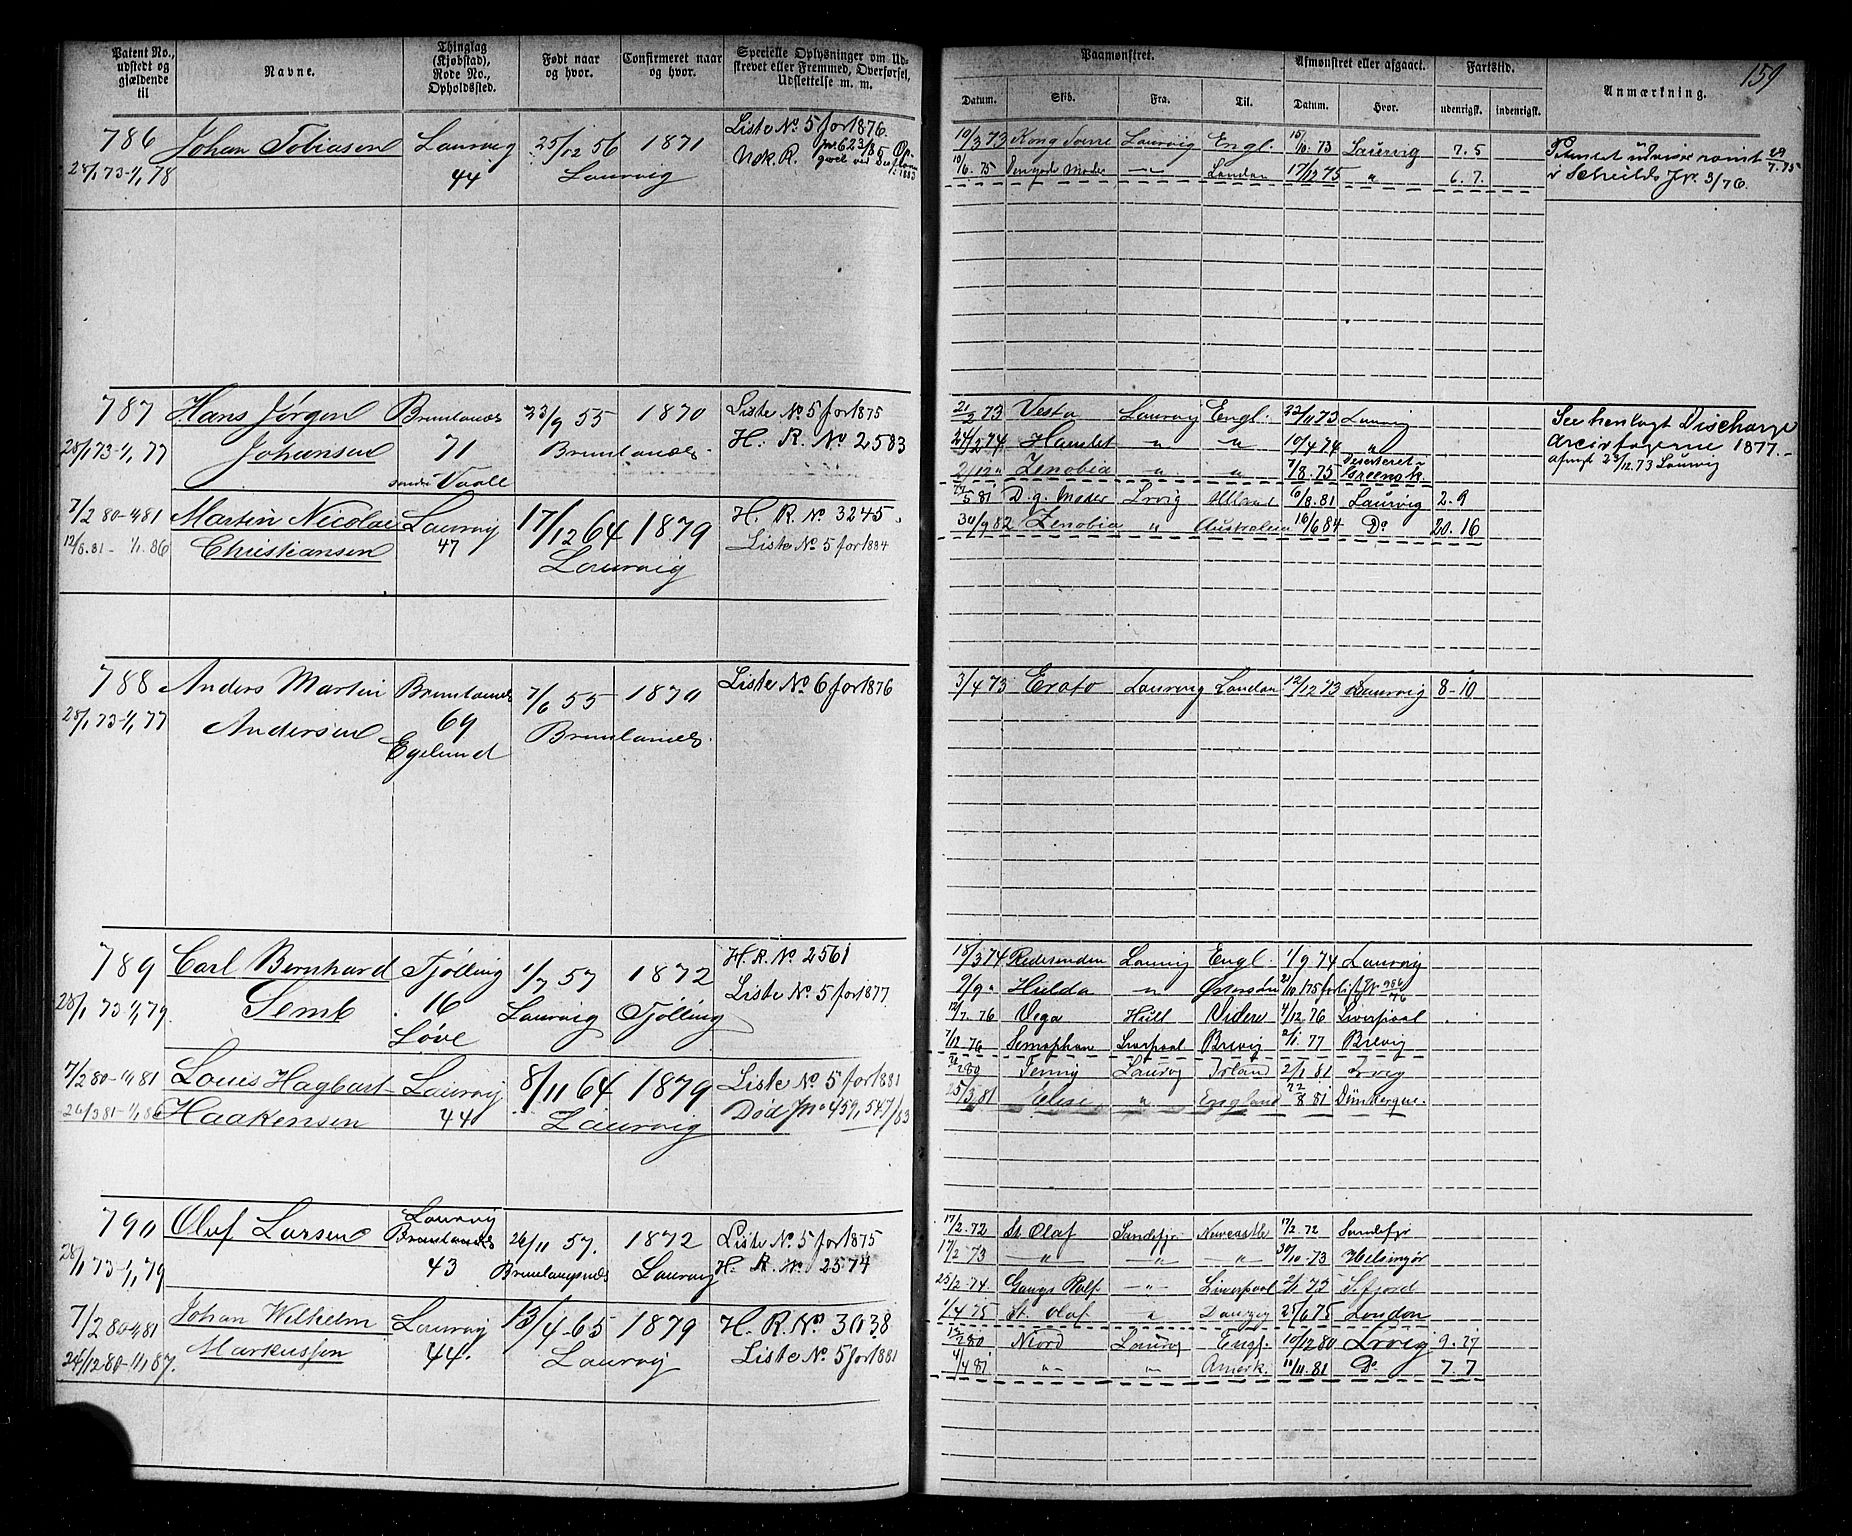 159
Patent No., udstedt og gjældende til
Navne.
Thinglag (Kjøbstad), Rode No., Opholdssted.
Født naar og hvor.
Confirmeret naar og hvor.
Specielle Oplysninger om Udskrevet eller Fremmed, Overførsel, Udslettelse m. m.
Paamønstret.
Afmønstret eller afgaaet.
Fartstid.
Anmærkning.
Datum. Skib. Fra. Til. Datum. Hvor. udenrigsk. indenrigsk.
786 Johan Tobiasen Laurvig 25/12 56 1871 Liste No 5 for 1876.
28/1 73-1/1 78 44 Laurvig
10/3 73 Kong Sverre Laurvig Engl. 15/10 73 Laurvig 7.5
10/6. 75 Den gode Moder — London 17/12 75 " 6.7.
787 Hans Jørgen Brunlanæs 23/9 55 1870 Liste No 5 for 1875
28/1 73-1/1 77 Johansen 71 Brunlanæs. H. R. No 2583
søndre Vaall
21/2 73 Vesta Laurvig Engl. 22/11 73 Laurvig
24/2 74 Hamlet " " 10/4 74 "
2/12 " Zenobia " " 7/8. 75 Deserteret Greenock
Discharge
1877.
23/12. 73 Laurvig
7/2 80-1/1 81 Martin Nicolai Laurvig 17/12 64 1879 H. R. No 3245.
12/8. 81- 1/1. 86 Christiansen 47 Laurvig Liste No 5 for 1884
D. g. Moder Lrvig 6/8. 81 Laurvig 2.9
30/9 82 Zenobia " Australien 16/6 84 Do 20. 16
788 Anders Martin Brunlanæs 7/6 55 1870 Liste No 6 for 1876
28/1 73-1/1 77 Andersen 69 Brunlanæs.
Egelund
3/4 73 Erato Laurvig London 12/12 73 Laurvig 8-10
789 Carl Bernhard Tjølling 1/7 57 1872 H. R. No 2561
28/1 73-1/1 79 Semb 16 Laurvig Tjølling Liste No 5 for 1877
Løve
18/3 74 Laurvig Engl. 1/9 74 Laurvig
9/9 " Hulda " Østersøen
12/7. 76 Vega Hull Videre 4/12 76 Liverpool
7/12 76 Liverpool Brevig 2/1. 77 Brevig
7/2 80-1/1 81 Louis Hagbart Laurvig 8/11 64 1879 Liste No 5 for 1881
26/3 81-1/1 86 Haakensen 44 Laurvig Død Jno 459, 547/83
Jenny Laurvig Irland 2/1 81 Lrvig
25/3. 81 Elise " England 22/8 81 Dünkerque.
790 Oluf Larsen Laurvig Brunlanæs 26/11 57. 1872 Liste No 5 for 1875
28/1 73-1/1 79 43 Brunlangnæs Laurvig H. R. No 2574
17/2. 72 St Olaf Sandefjr Newcastle 17/2. 72 Sandefjr
17/2-73 " " " 30/10-73 Helsingør
25/2-74 Gange Rolf — Liverpool S.fjord
St. Olaf " Danzig 25/6 75 London
7/2 80-1/1 81 Johan Wilhelm Laurvig 13/4-65 1879 H. R. No 3038
24/12 80-1/1 87. Markussen 44. Laurvig Liste No 5 for 1881
Niord Laurvig Engl. 10/12 80 Lrvig 9.27
4/4 81 " " Amerk. 10/11. 81 Do 7.7